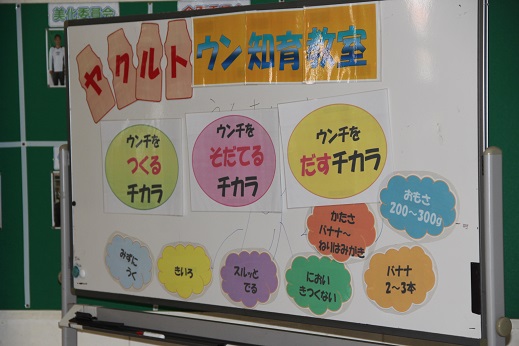 美化委員会
ヤクルト
ウン知育教室
ウンチを
つくる
チカラ
ウンチを
そだてる
チカラ
ウンチを
だすチカラ
おもさ
200～300g
かたさ
バナナ～
ねりはみがき
みずに
うく
きいろ
スルッと
でる
におい
きつくない
バナナ
2～3本